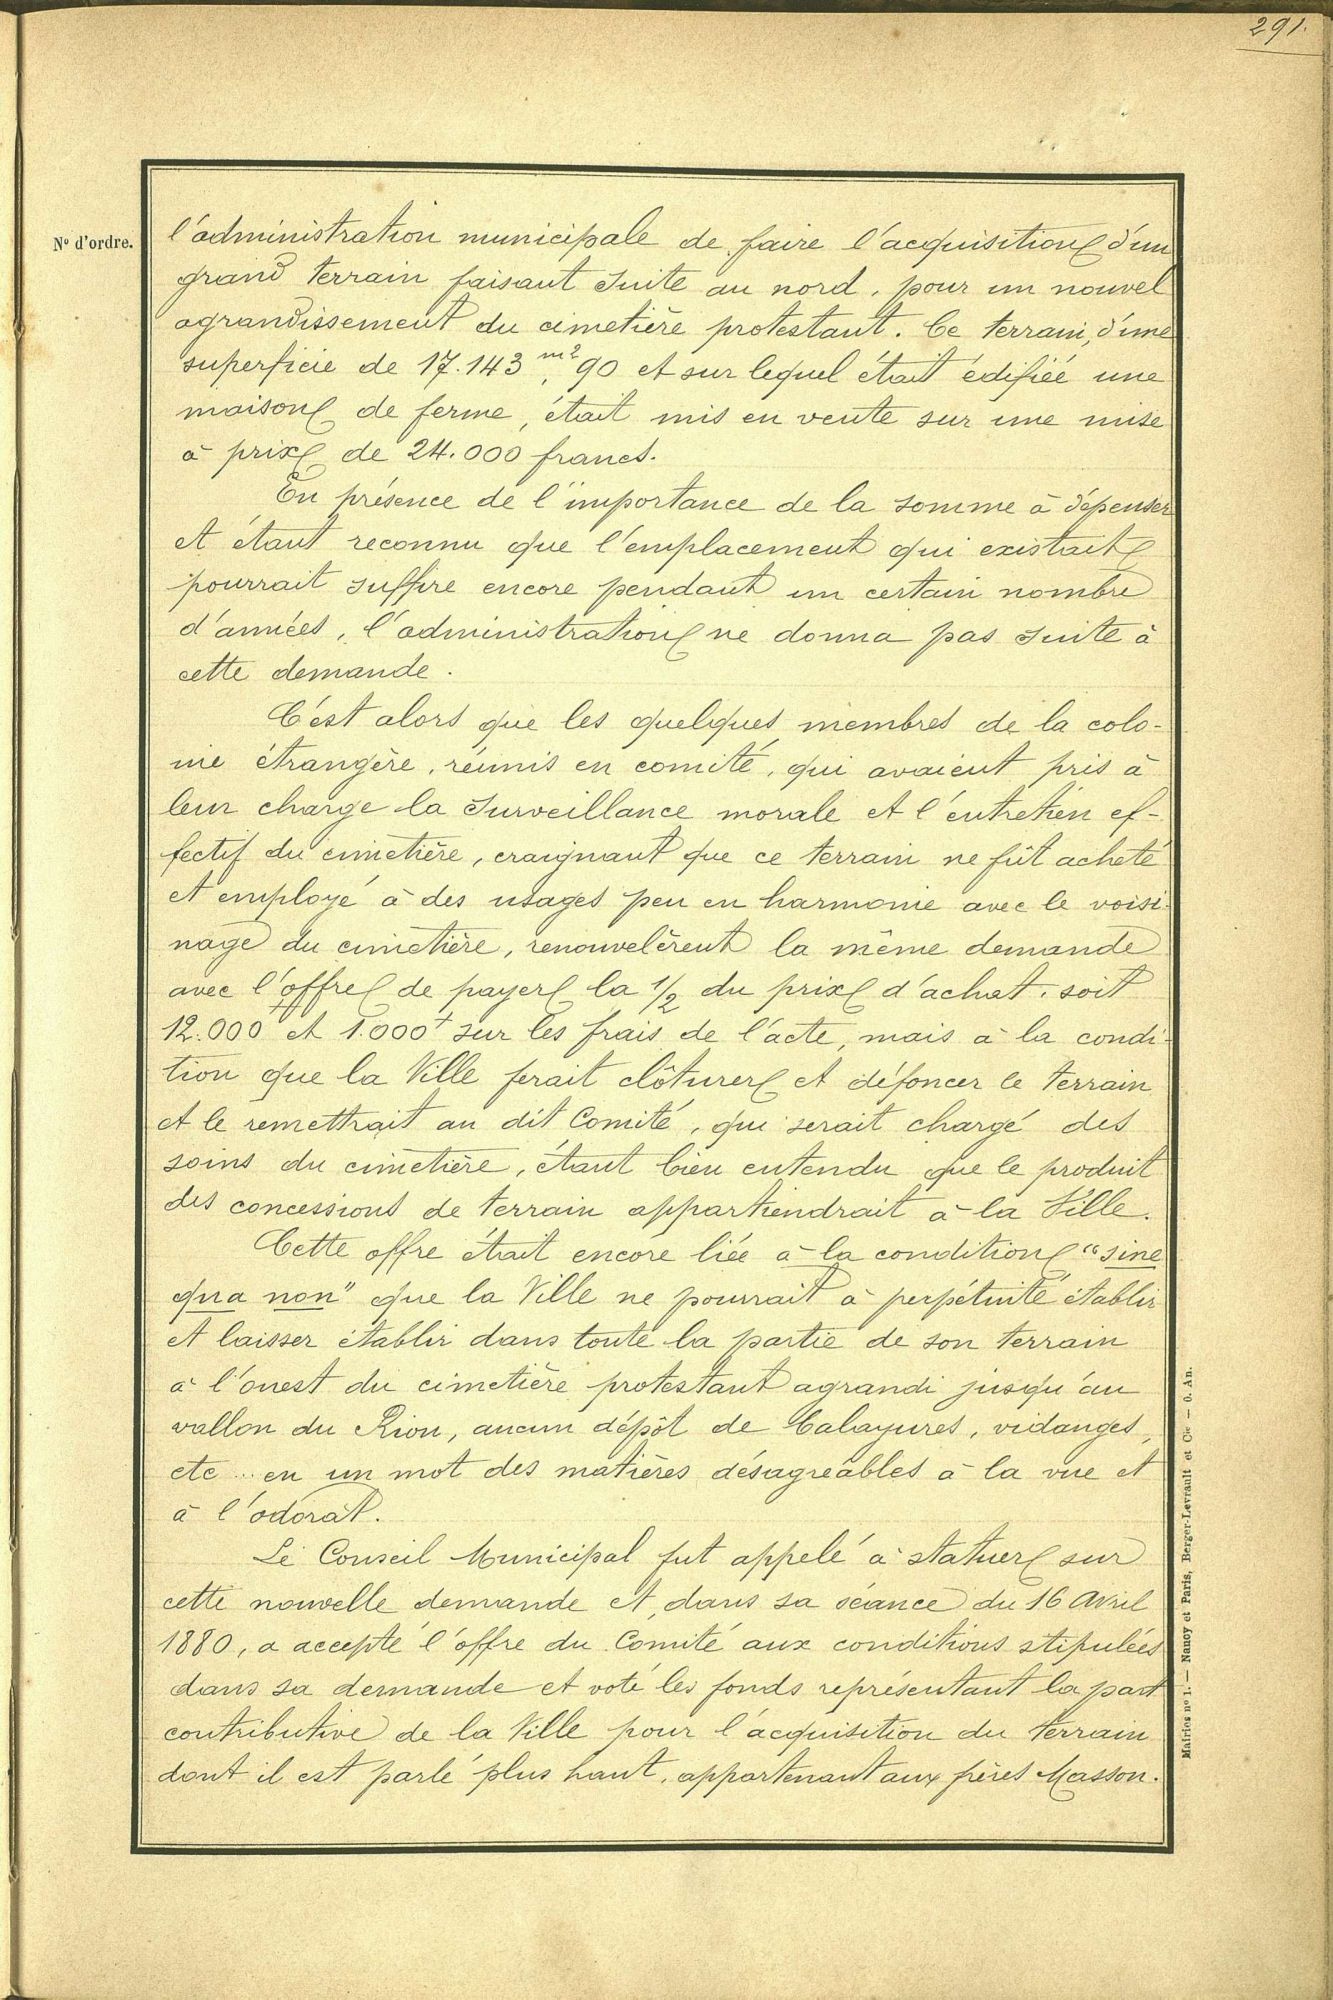 291.
N° d'ordre.
l'administration municipale de faire l'acquisition d'un
grand terrain faisant suite au nord, pour un nouvel
agrandissement du cimetière protestant. Ce terrain, d'une
superficie de 17.143 m2, 90 et sur lequel était édifiée une
maison de ferme, était mis en vente sur une mise
à prix de 24.000 francs.
En présence de l'importance de la somme à dépenser
et étant reconnu que l'emplacement qui existait
pourrait suffire encore pendant un certain nombre
d'années, l'administration ne donna pas suite à
cette demande.
C'est alors que les quelques membres de la colo-
nie étrangère, réunis en comité, qui avaient pris à
leur charge la surveillance morale et l'entretien ef-
fectif du cimetière, craignant que ce terrain ne fût acheté
et employé à des usages peu en harmonie avec le voisi-
nage du cimetière, renouvelèrent la même demande
avec l'offre de payer la 1/2 du prix d'achat, soit
12.000 f et 1.000 f sur les frais de l'acte, mais à la condi-
tion que la Ville ferait clôturer et défoncer le terrain
et le remettrait au dit Comité, qui serait chargé des
soins du cimetière, étant bien entendu que le produit
des concessions de terrain appartiendrait à la Ville.
Cette offre était encore liée à la condition "sine
qua non" que la Ville ne pourrait à perpétuité établir
et laisser établir dans toute la partie de son terrain
à l'ouest du cimetière protestant agrandi jusqu'au
vallon du Riou, aucun dépôt de balayures, vidanges,
etc... en un mot des matières désagréables à la vue et
à l'odorat.
Le Conseil Municipal fut appelé à statuer sur
cette nouvelle demande et, dans sa séance du 16 Avril
1880, a accepté l'offre du Comité aux conditions stipulées
dans sa demande et voté les fonds représentant la part
contributive de la Ville pour l'acquisition du terrain
dont il est parlé plus haut, appartenant aux frères Masson.
Mairies n° 1. — Nancy et Paris, Berger-Levrault et Cie — O. An.